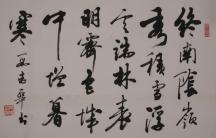 终南阴岭
秀积雪浮
云端林表
明霁色城
中增暮
寒